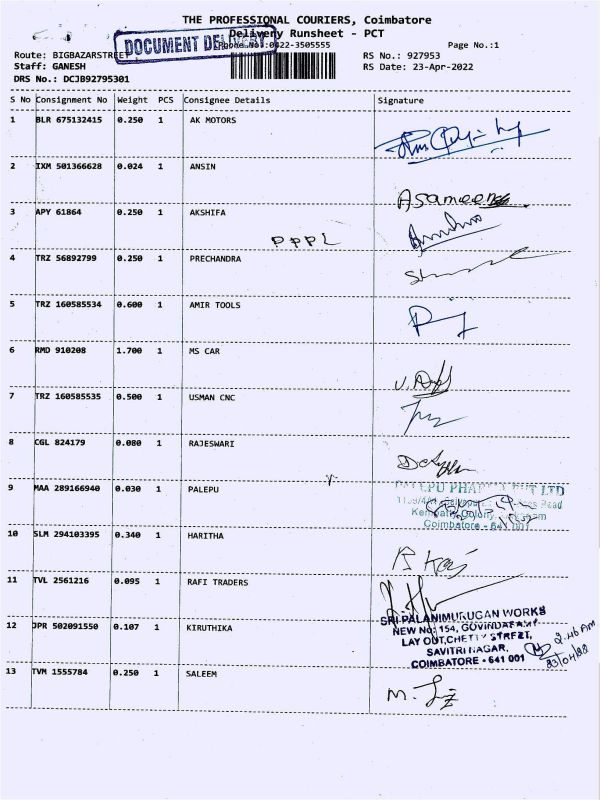 THE PROFESSIONAL COURIERS, Coimbatore
Delivery Runsheet - PCT
DOCUMENT DELIVERY
Phone No:0422-3505555 Page No.:1
Route: BIGBAZARSTREET RS No.: 927953
Staff: GANESH RS Date: 23-Apr-2022
DRS No.: DCJB92795301
S No Consignment No Weight PCS Consignee Details Signature
1 BLR 675132415 0.250 1 AK MOTORS
2 IXM 501366628 0.024 1 ANSIN
Asameena
3 APY 61864 0.250 1 AKSHIFA
PPPL
4 TRZ 56892799 0.250 1 PRECHANDRA
5 TRZ 160585534 0.600 1 AMIR TOOLS
6 RMD 910208 1.700 1 MS CAR
7 TRZ 160585535 0.500 1 USMAN CNC
8 CGL 824179 0.080 1 RAJESWARI
9 MAA 289166940 0.030 1 PALEPU
PALEPU PHARMA PVT LTD
Coimbatore - 641
10 SLM 294103395 0.340 1 HARITHA
11 TVL 2561216 0.095 1 RAFI TRADERS
12 JPR 502091550 0.107 1 KIRUTHIKA
SRI PALANIMURUGAN WORKS
NEW No: 154, GOVINDASAMY
LAY OUT, CHETTY STREET,
SAVITRI NAGAR,
COIMBATORE - 641 001
2.46 AM
23/04/22
13 TVM 1555784 0.250 1 SALEEM